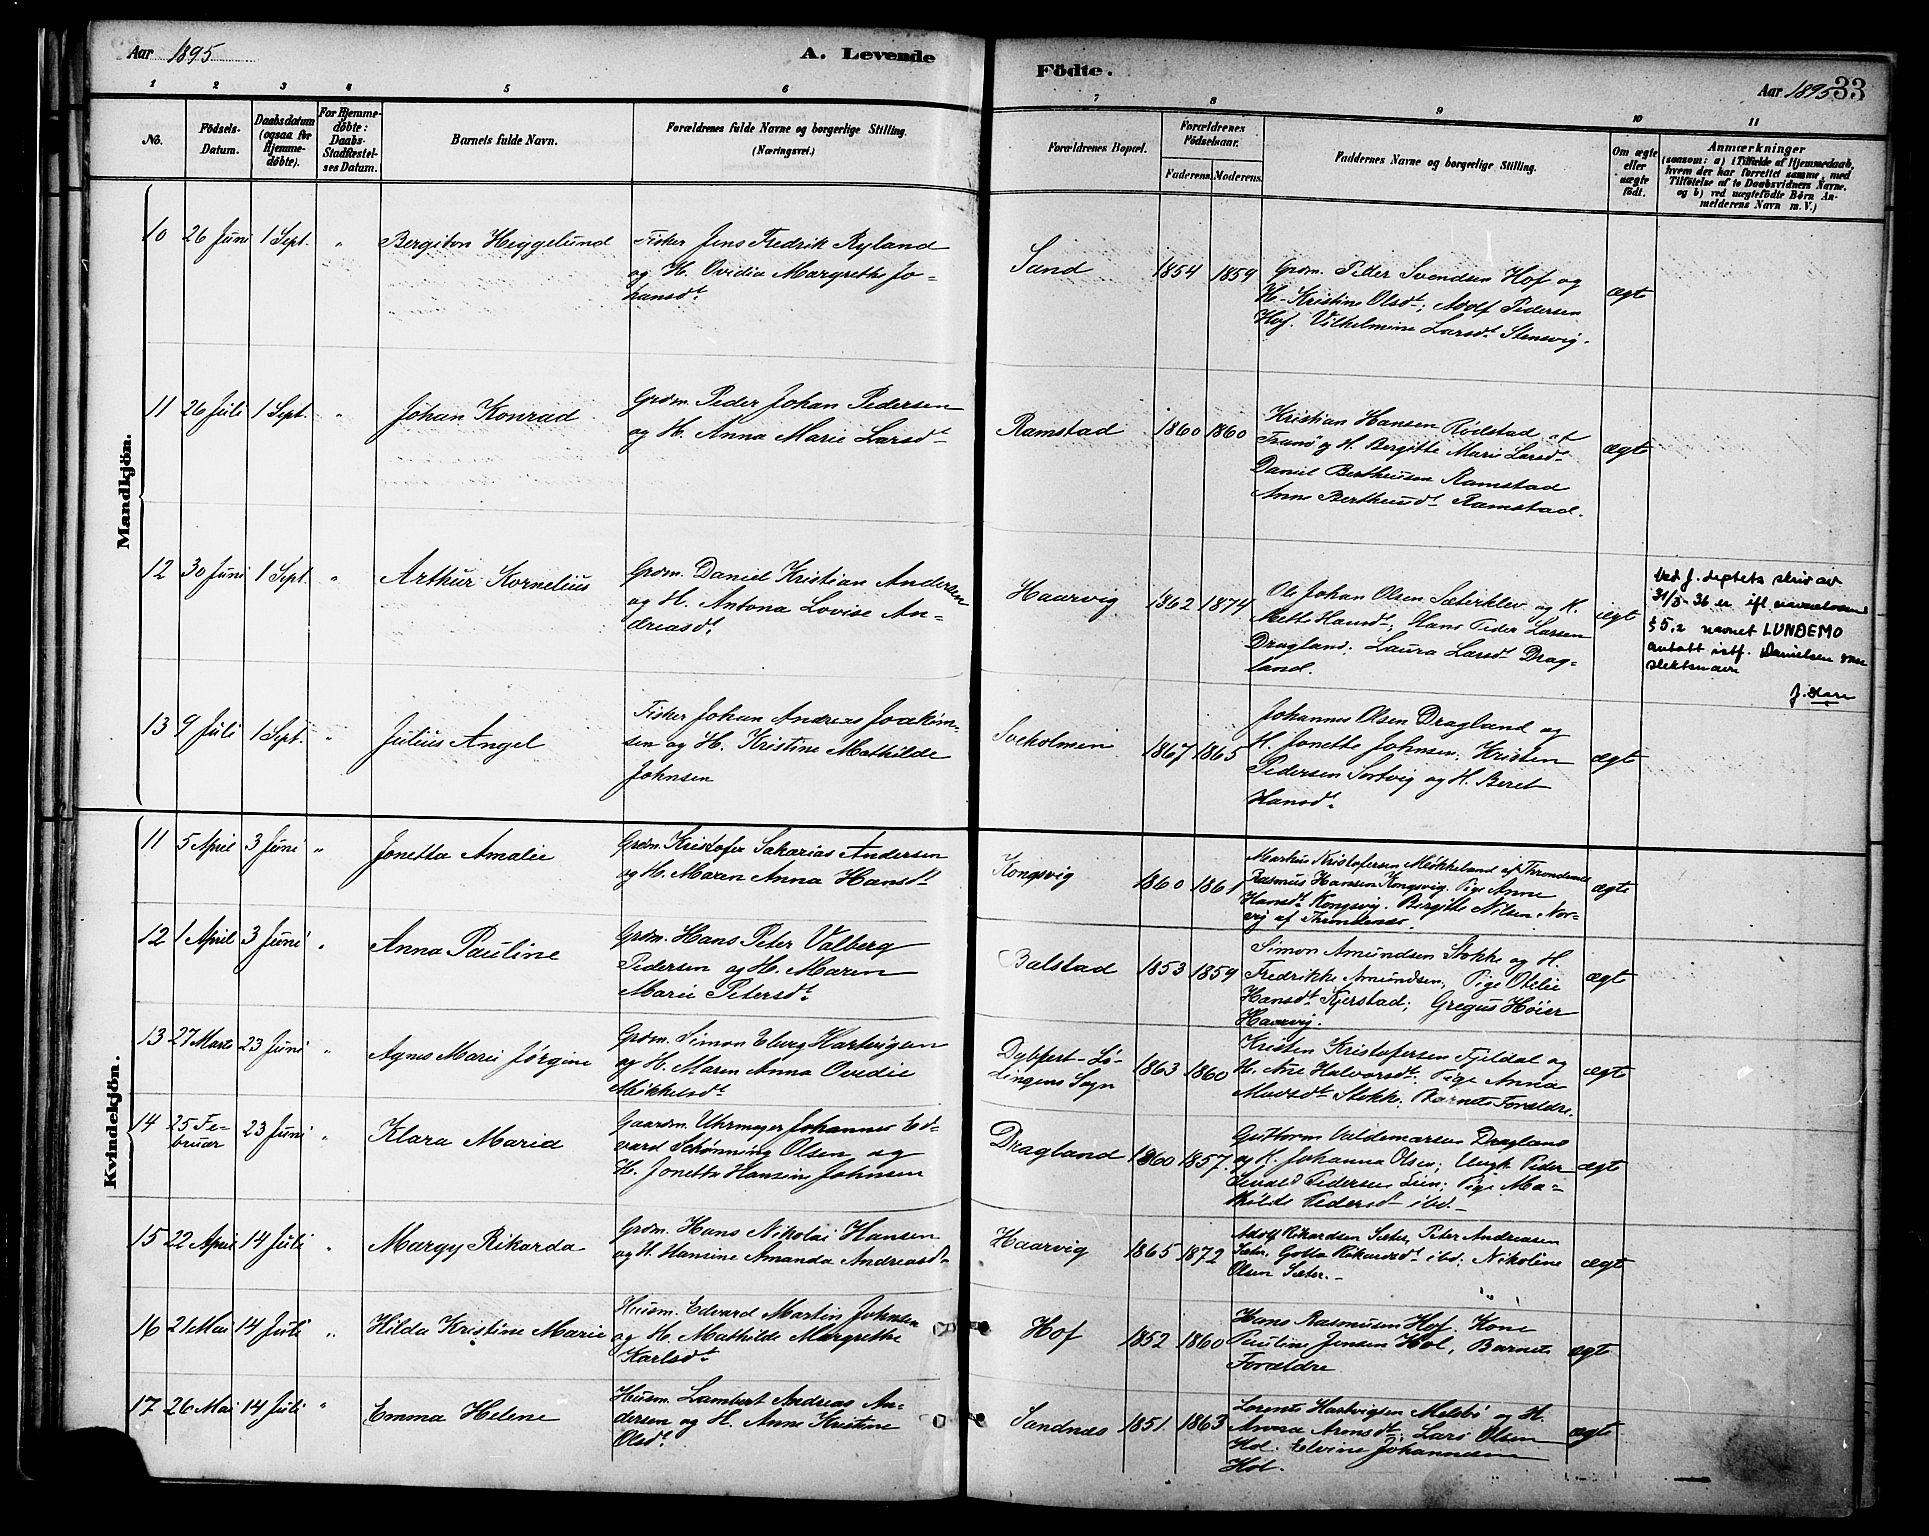 Aar 1895
A. Levende
Födte.
Aar 1895
33
1 2 3 4 5 6 7 8 9 10 11
No.
Födsels-
Datum.
Daabsdatum
(ogsaa for
Hjemme-
døbte).
For Hjemme-
døbte:
Daabs-
Stadfæstel-
ses Datum.
Barnets fulde Navn.
Forældrenes fulde Navne og borgerlige Stilling.
(Næringsvei.)
Forældrenes Bopæl.
Forældrenes
Födselsaar.
Faderens. Moderens.
Faddernes Navne og borgerlige Stilling.
Om ægte
eller
uægte
födt.
Anmærkninger
(saasom: a) i Tilfælde af Hjemmedaab,
hvem der har forrettet samme, med
Tilføielse af to Daabsvidners Navne.
og b) ved uægtefödte Börn An-
melderens Navn m. V.)
Mandkjön.
10 26 Juni 1 Sept. " Bergiton Heggelund
Fisker Jens Fredrik Ryland
og H. Ovidia Margrethe Jo-
hansdt.
Sand 1854 1859
Grdm. Peder Svendsen Hof og
H. Kristine Olsdt; Adolf Pedersen
Hof. Vilhelmine Larsdt Stensvig.
ægte
11 26 Juli 1 Sept. " Johan Konrad
Grdm. Peder Johan Pedersen
og H. Anna Marie Larsdt
Ramstad 1860 1860
Kristian Hansen Rødstad af
Tranø og H. Bergitte Marie Larsdt
Daniel Bertheusen Ramstad
Anne Bertheusdt Ramstad.
ægte
12 30 Juni 1 Sept. " Arthur Kornelius
Grdm. Daniel Kristian Andersen
og H. Antona Lovise An-
dreasdt.
Haarvig 1862 1874
Ole Johan Olsen Sæterklev og K.
Mette Hansdt; Hans Peder Larsen
Dragland; Laura Larsdt Drag-
land.
ægte
Ved J. deptets skriv av
31/3-36 er ifl. navneloven
§ 5,2 navnet LUNDEMO
antatt istf. Danielsen som
slektsnavn
13 9 Juli 1 Sept. " Julius Angel
Fisker Johan Andreas Joakim-
sen og H. Kristine Mathilde
Johnsen
Sveholmen 1867 1865
Johannes Olsen Dragland og
H. Jonette Johnsen; Kristen
Pedersen Sortvig og H. Beret
Hansdt.
ægte
Kvindekjön.
11 5 April 3 Juni " Jonetta Amalie
Grdm. Kristofer Sakarias Andersen
og H. Maren Anna Hansdt.
Kongsvig 1860 1861
Markus Kristofersen Møkkeland af Throndenes
Rasmus Hansen Kongsvig. Pige Anne
Hansdt. Kongsvig. Birgitte Nilsen Nor-
vig af Throndenæs.
ægte
12 1 April 3 Juni " Anna Pauline
Grdm. Hans Peter Valberg
Pedersen og H. Maren
Marie Petersdt.
Balstad 1853 1859
Simon Amundsen Stokke og H.
Fredrikke Amundsen; Pige Otelie
Hansdt. Kjerstad; Gregus Høier
Haarvig.
ægte
13 27 Marts 23 Juni " Agnes Marie Jørgine
Grdm. Simon Eberg Hartvigsen
og H. Maren Anna Ovidie
Mikkelsdt.
Dybfjert-Lø-
dingens Sogn 1863 1860
Kristen Kristofersen Fjeldal og
H. Ane Halvorsdt. Pige Anna
Madsdt Stokke; Barnets Forældre.
ægte
14 25 Fe-
bruar 23 Juni " Klara Maria
Gaardm. Uhrmager Johannes Ed-
vard Schønning Olsen og
H. Jonetta Hansine Johnsen
Dragland 1860 1857.
Guttorm Valdemarsen Dragland
og K. Johanna Olsen; Ungk. Peder
Sevald Pedersen Lien; Pige Ma-
thilde Pedersdt ibd.
ægte
15 22 April 14 Juli " Margy Rikarda
Grdm. Hans Nikolai Hansen
og H. Hansine Amanda Andreasdt
Haarvig 1865 1872
Adolf Rikardsen Sæter, Peter Andreasen
Sæter. Golla Rikardsdt ibd; Nikoline
Olsen Sæter.
ægte
16 21 Mai 14 Juli " Hilda Kristine Marie
Husm. Edvard Martin Johnsen
og H. Mathilde Margrethe
Karlsdt.
Hof 1852 1860
Hans Rasmusen Hof. Kone
Pauline Jensen Hol, Barnets
Forældre
ægte
17 26 Mai 14 Juli " Emma Helene
Husm. Lambert Andreas An-
dersen og H. Anne Kristine
Olsdt.
Sandnæs 1851. 1863
Lorents Hartvigsen Melsbø og H.
Anna Arensdt; Lars Olsen
Hol. Elvine Johannesen
Hol.
ægte